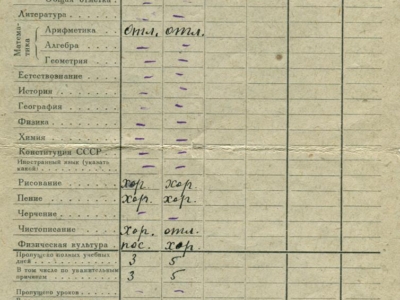 Общая отметка
Литература - -
Матема-
тика
Арифметика отл. отл.
Алгебра - -
Геометрия - -
Естествознание - -
История - -
География - -
Физика - -
Химия - -
Конституция СССР - -
Иностранный язык (указать
какой) - -
Рисование хор. хор.
Пение хор. хор.
Черчение - -
Чистописание хор. отл.
Физическая культура пос. хор.
Пропущено полных учебных
дней 3 5
В том числе по уважительным
причинам 3 5
Пропущено уроков - -